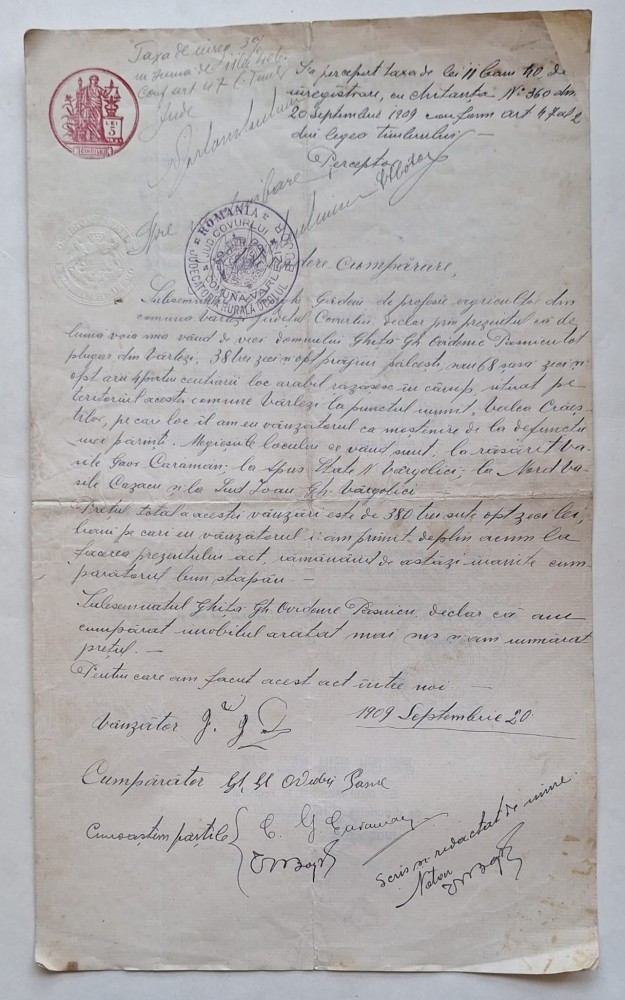 Taxa de înreg. 3%
în suma de
Conf art 47 l. Timb
Jude
LEI 5
S'a perceput taxa de lei 11 bani 40, de
înregistrare, cu chitanța No 360 din
20 septembrie 1909 conform art 47 al 2
din legea timbrului
Perceptor
ROMANIA
JUD. COVURLUI
COMUNA VARLEZI
JUDECATORIA RURALA OCOLUL
Cumpărare,
Subsemnatul Gh Gardeu de profesie agricultor din
comuna Vârlezi, județul Covurlui, declar prin prezentul că de
bună voia mea vând de veci domnului Ghița Gh Ovidenie Pasnicu tot
plugar din Vârlezi, 38 trei zeci și opt prăjini fălcești, sau 68 șasă zeci și
opt arii 4 patru centiarii loc arabil răzășesc în câmp, situat pe
teritoriul acestei comune Vârlezi la punctul numit, Valea
pe care loc îl am eu vânzătorul ca moștenire de la defuncții
mei părinți. Megieșiile locului ce vând sunt, la răsărit Va-
sile Gavr Caraman; la apus State N Vârgolici; la Nord Va-
sile Cazacu și la Sud Ioan Gh. Vârgolici —
Prețul total a acestei vânzări este de 380 trei sute opt zeci lei,
bani pe cari eu vânzătorul i-am primit deplin acum la
facerea prezentului act, rămânând de astăzi înainte cum-
părătorul bun stăpân —
Subsemnatul Ghița Gh Ovidenie Pasnicu, declar că am
cumpărat imobilul arătat mai sus și am numărat
prețul. —
Pentru care am facut acest act între noi —
1909 Septembrie 20
Vânzător
Cumpărător Gh Gh Ovidenie
Cunoaștem părțile C G Caraman
Scris și redactat de mine
Notar